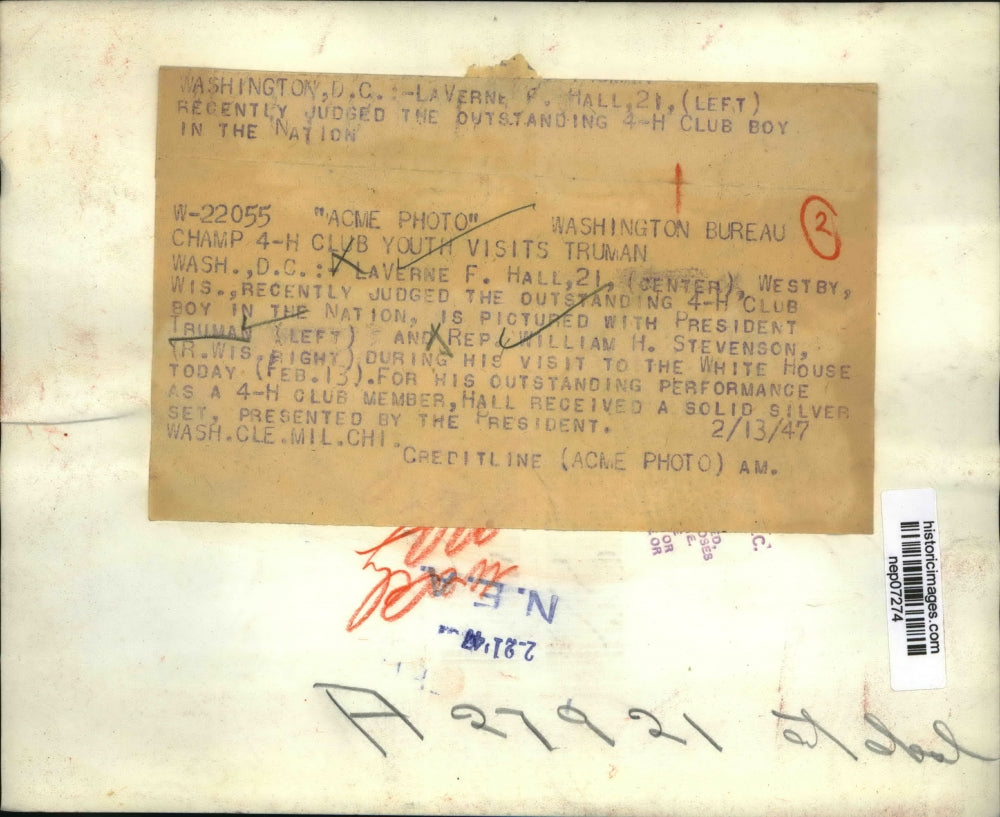 WASHINGTON,D.C.:-LAVERNE F. HALL,21,(LEFT)
RECENTLY JUDGED THE OUTSTANDING 4-H CLUB BOY
IN THE NATION
W-22055 "ACME PHOTO" WASHINGTON BUREAU 2
CHAMP 4-H CLUB YOUTH VISITS TRUMAN
WASH.,D.C.: LAVERNE F. HALL,21 (CENTER), WESTBY,
WIS.,RECENTLY JUDGED THE OUTSTANDING 4-H CLUB
BOY IN THE NATION, IS PICTURED WITH PRESIDENT
TRUMAN (LEFT) AND REP. WILLIAM H. STEVENSON,
(R.WIS,RIGHT) DURING HIS VISIT TO THE WHITE HOUSE
TODAY (FEB.13).FOR HIS OUTSTANDING PERFORMANCE
AS A 4-H CLUB MEMBER,HALL RECEIVED A SOLID SILVER
SET, PRESENTED BY THE PRESIDENT. 2/13/47
WASH.CLE.MIL.CHI.
CREDITLINE (ACME PHOTO) AM.
historicimages.com
nep07274
N.E.A.
2-21'47
A 27921